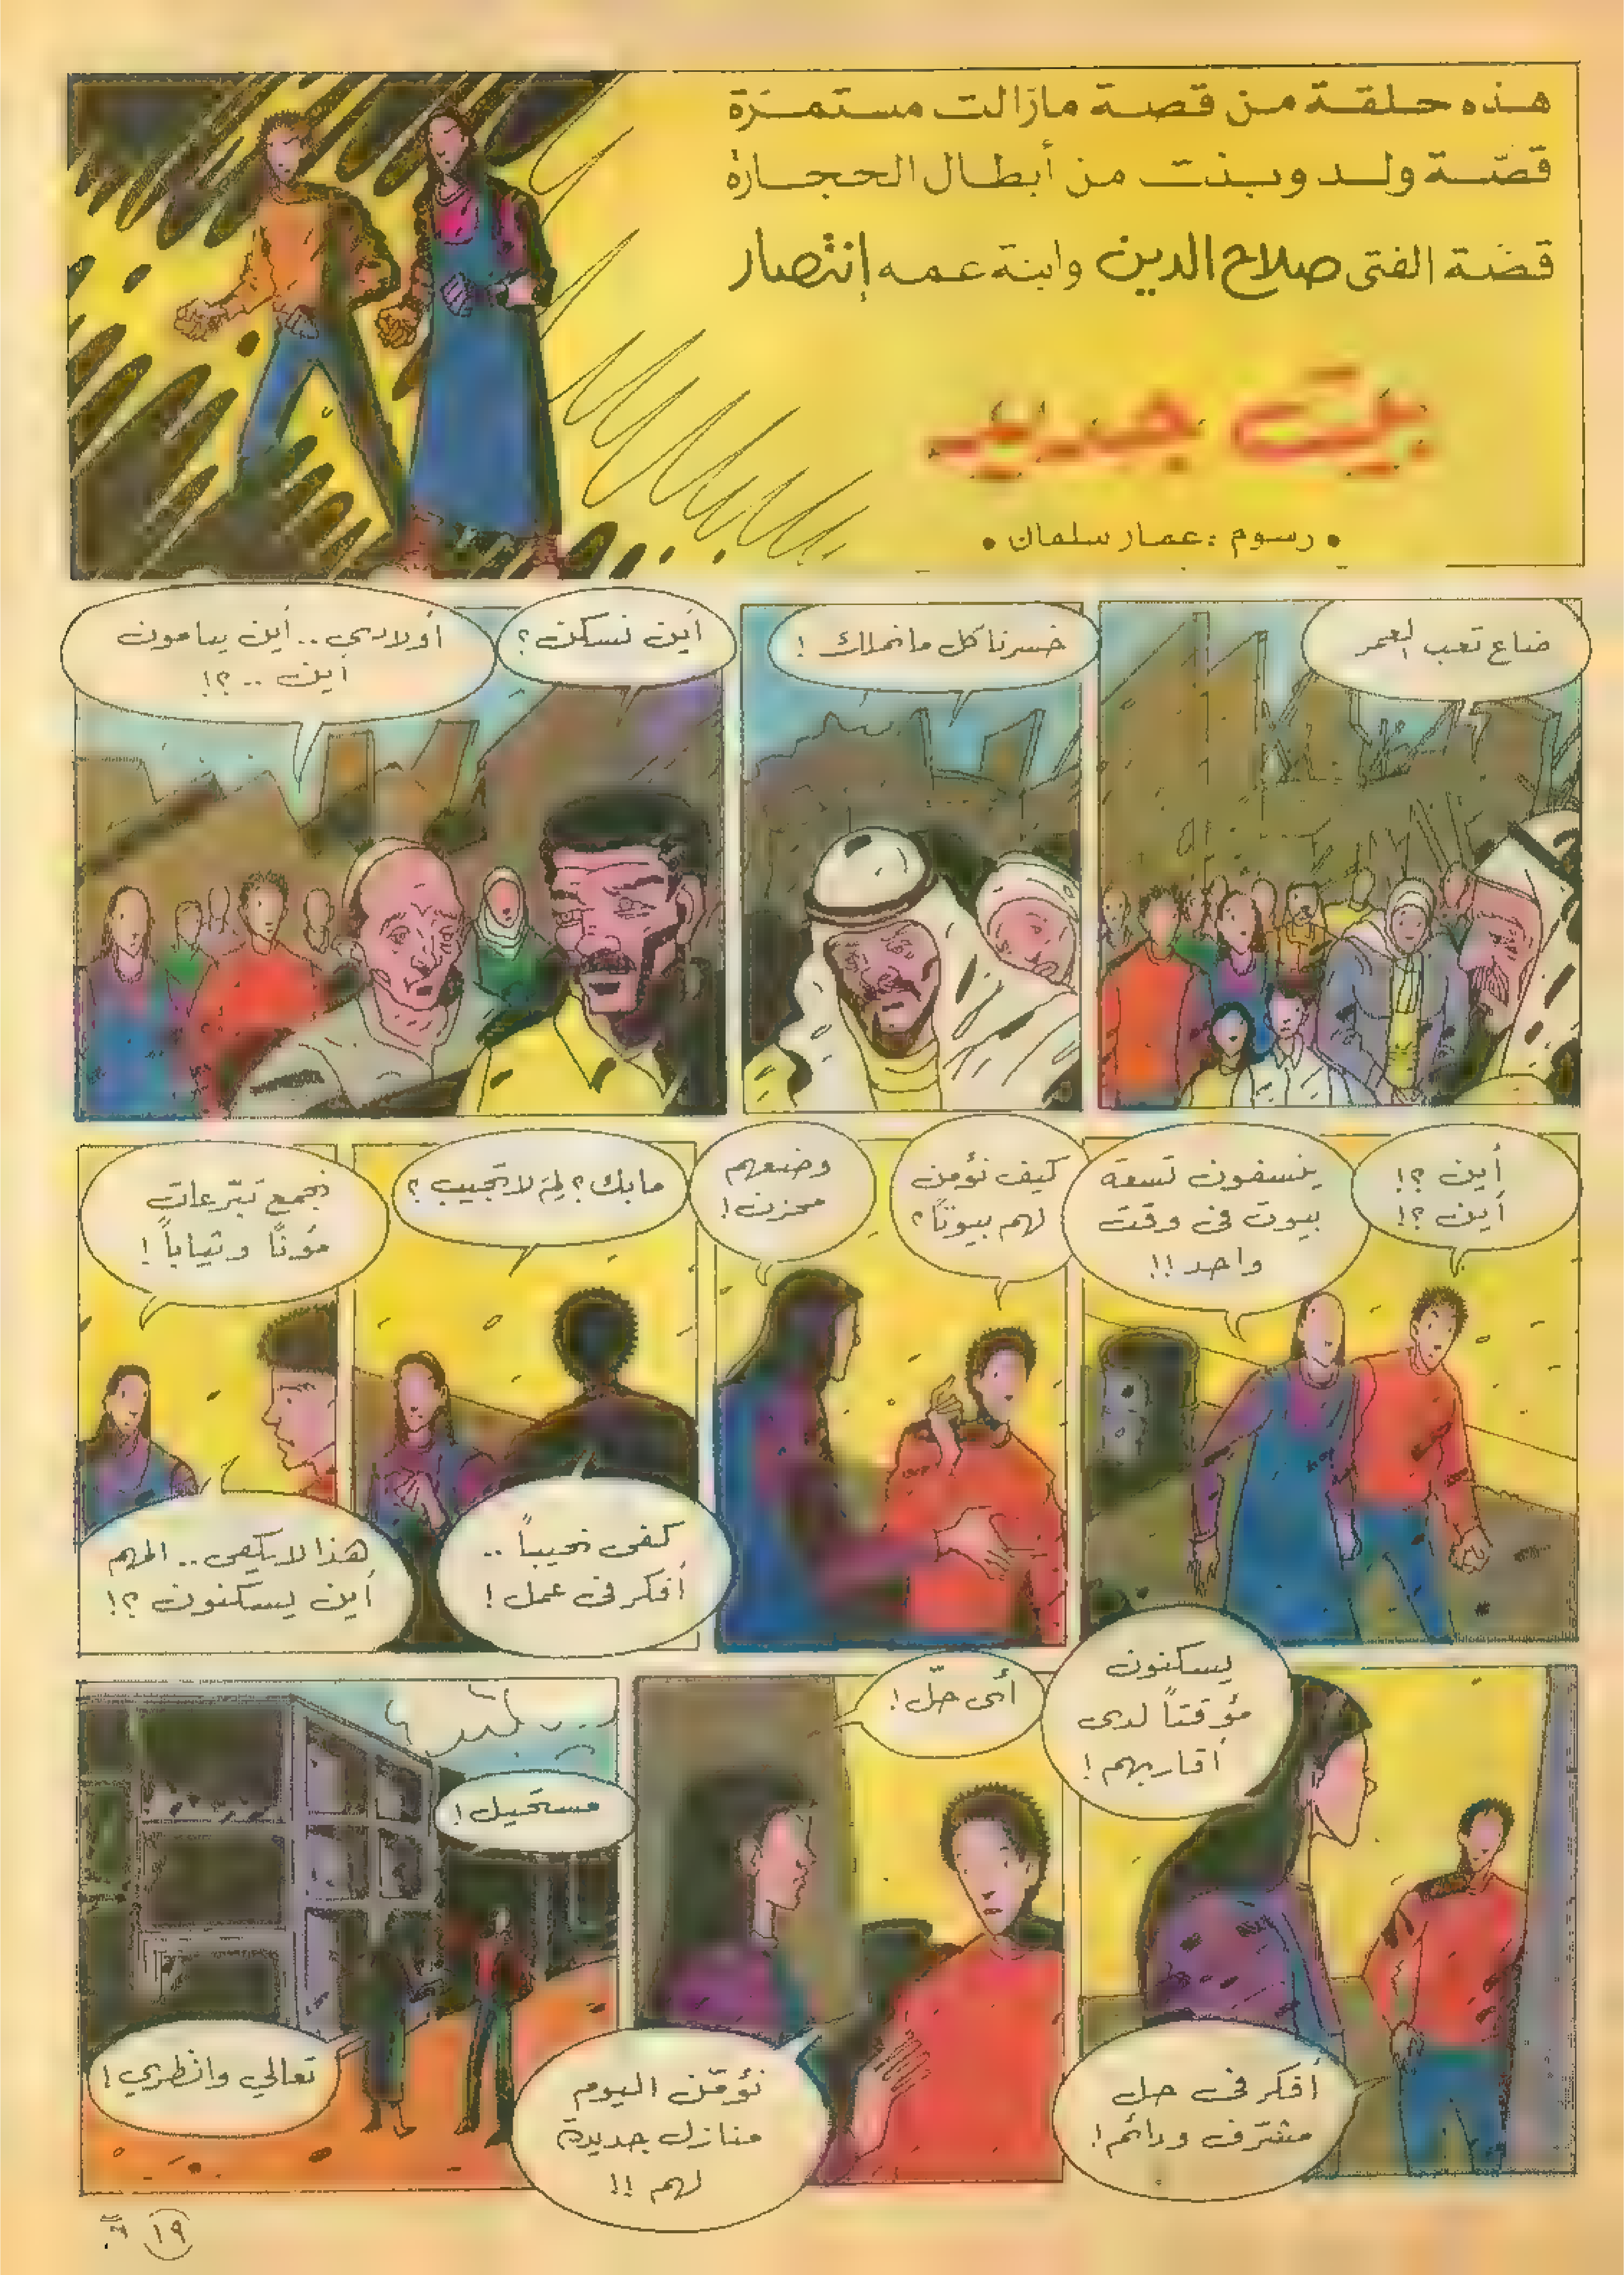 هذه حلقة من قصة مازالت مستمرّة
قصّة ولد وبنت من أبطال الحجارة
قصّة الفتى صلاح الدين وابنة عمه إنتصار
بيت جديد
• رسوم : عمار سلمان •
ضاع تعب العمر
خسرنا كل ما نملك !
أين نسكن ؟
أولادي .. أين ينامون
أين .. ؟!
أين ؟!
أين ؟!
ينسفون تسعة
بيوت في وقت
واحد !!
كيف نؤمن
لهم بيوتاً ؟
وضعهم
محزن !
مابك ؟ لِمَ لا تجيب ؟
كفى نحيباً ..
أفكر في عمل !
نجمع تبّرعات
مؤناً وثياباً !
هذا لا يكفي .. المهم
أين يسكنون ؟!
يسكنون
مؤقتاً لدى
أقاربهم !
أفكر في حل
مشرّف ودائم !
أي حلّ !
نؤمّن اليوم
منازل جديدة
لهم !!
مستحيل !
تعالي وانظري !
١٩